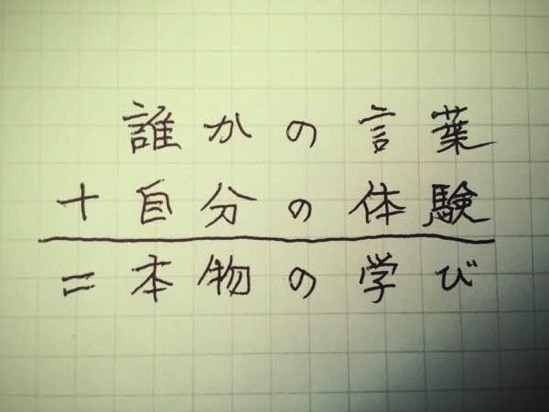 誰かの言葉
+自分の体験
=本物の学び